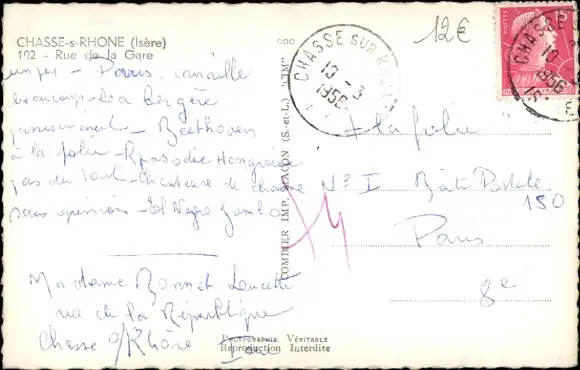 CHASSE-s-RHONE (Isère)
102 - Rue de la Gare
un peu - Paris canaille
beaucoup - La bergère
passionnément - Beethoven
à la folie - Rhapsodie Hongroise
pas du tout - Chanteuse de charme
sans opinion - El Negro Zumbo
Madame Bonnet Lucette
rue de la République
Chasse s/Rhône
COMBIER IMP. MACON (S.-et-L.) "CIM"
PHOTOGRAPHIE VÉRITABLE
Reproduction Interdite
CHASSE SUR RHONE
10 - 3
1956
12€
POSTES
15F
CHASSE S
10
1956
"A la folie"
N° I Boîte Postale
150
Paris
8e